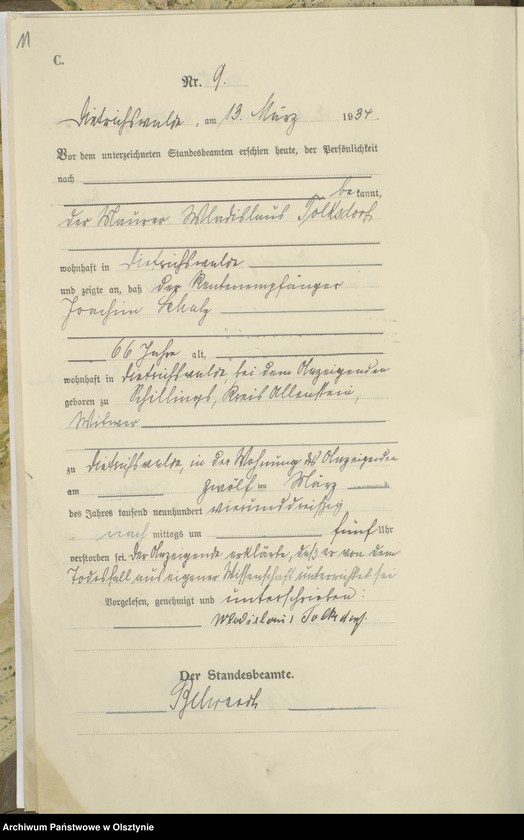 11
C.
Nr. 9.
Dietrichswalde, am 13. März 1934.
Vor dem unterzeichneten Standesbeamten erschien heute, der Persönlichkeit
nach
bekannt,
der Maurer Wladislaus Tolksdorf
wohnhaft in Dietrichswalde
und zeigte an, daß der Rentenempfänger
Joachim Schulz
66 Jahre alt,
wohnhaft in Dietrichswalde, bei dem Anzeigenden
geboren zu Schillings, Kreis Allenstein,
Witwer
zu Dietrichswalde, in der Wohnung des Anzeigenden
am zwölften März
des Jahres tausend neunhundert vierunddreißig
nach mittags um fünf Uhr
verstorben sei. Der Anzeigende erklärte, daß er von dem
Todesfall aus eigener Wissenschaft unterrichtet sei
Vorgelesen, genehmigt und unterschrieben:
Wladislaus Tolksdorf.
Der Standesbeamte.
Archiwum Państwowe w Olsztynie